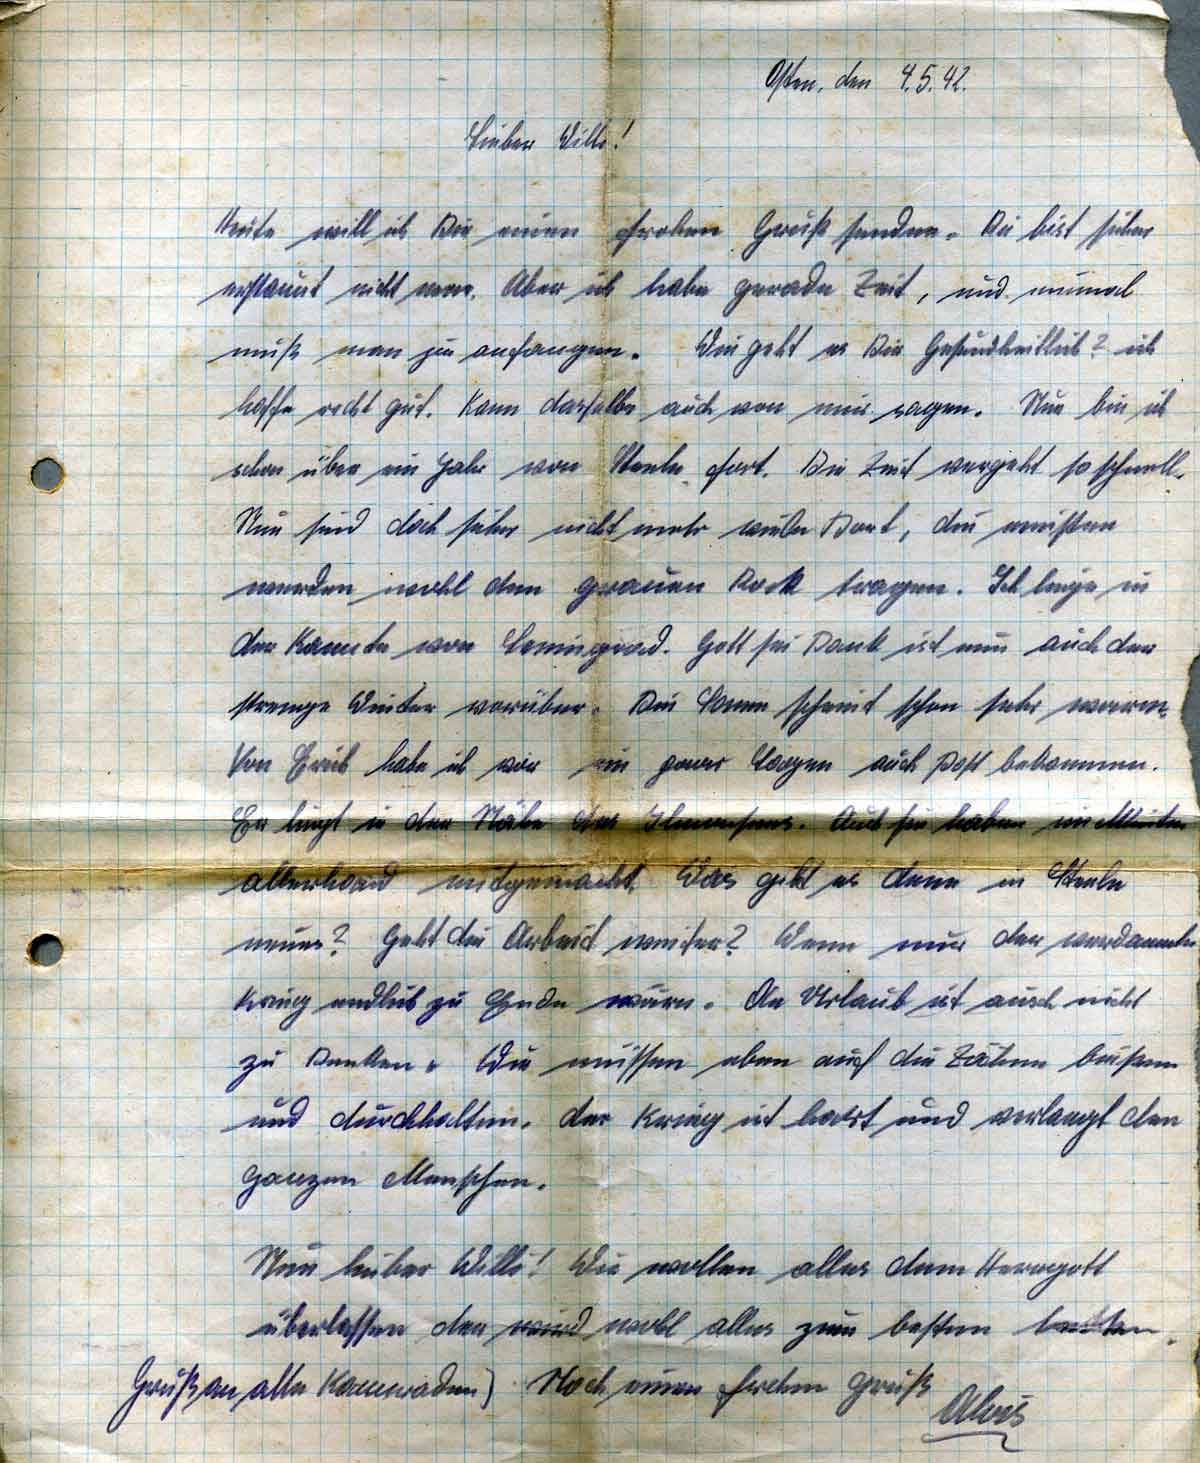 Osten, den 4.5.42.
Lieber Willi!
Heute will ich Dir einen frohen Gruß senden. Du bist sicher
erstaunt nicht war. Aber ich habe gerade Zeit, und einmal
muß man ja anfangen. Wie geht es Dir Gesundheitlich? ich
hoffe recht gut. Kann dasselbe auch von mir sagen. Nun bin ich
schon über ein Jahr von Steele fort. Die Zeit vergeht so schnell.
Nun sind doch sicher nicht mehr viele Dort, die meisten
werden wohl den grauen Rock tragen. Ich liege in
der Kannte von Leningrad. Gott sei Dank ist nun auch der
strenge Winter vorüber. Die Sonne scheint schon sehr warm.
Von Erich habe ich vor ein paar Tagen auch Post bekommen.
Er liegt in der Nähe des Ilmensees. Auch sie haben im Winter
allerhand mitgemacht. Was gibt es denn in Steele
neues? Geht die Arbeit weiter? Wenn nur der verdammte
Krieg endlich zu Ende wäre. An Urlaub ist auch nicht
zu Denken. Wir müssen eben auf die Zähne beißen
und durchhalten. der Krieg ist hart und verlangt den
ganzen Menschen.
Nun lieber Willi! Wir wollen alles dem Herrgott
überlassen der wird wohl alles zum besten
Gruß an alle Kameraden) Noch einen frohen Gruß
Alois